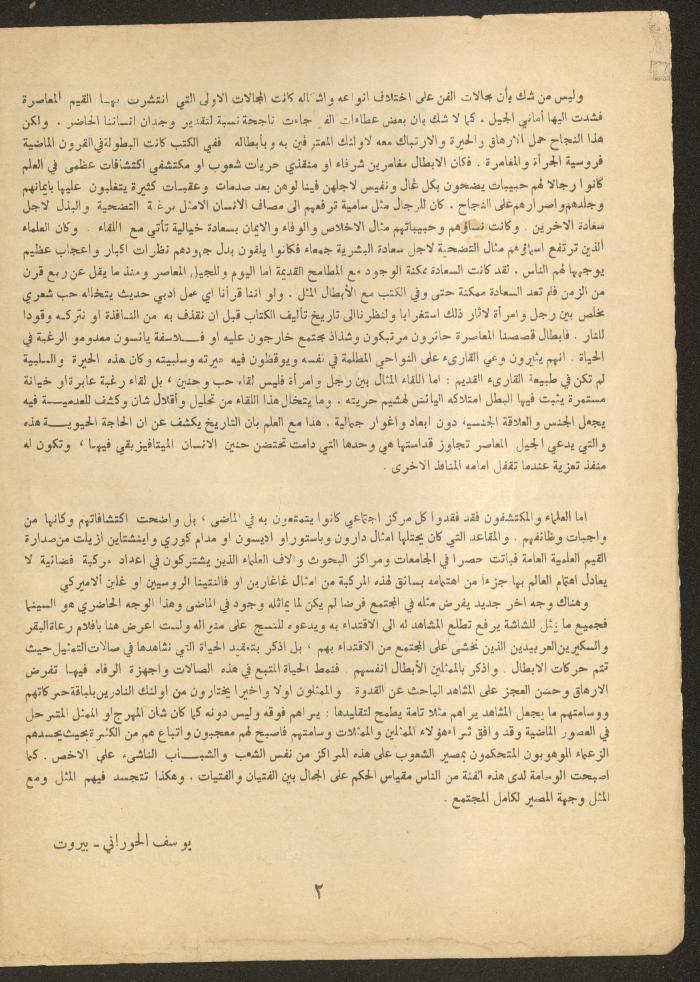 وليس من شك بأن مجالات الفن على اختلاف انواعه واشكاله كانت المجالات الاولى التي انتشرت بهـا القيم المعاصرة
فشدت اليها أماني الجيل . كما لا شك بان بعض عطاءات الفن جاءت ناجحة نسبة لتقدير وجدان انساننا الحاضر . ولكن
هذا النجاح حمل الارهاق والحيرة والارتباك معه لاولئك المعترفين به وبأبطاله ففي الكتب كانت البطولة في القرون الماضية
فروسية الجرأة والمغامرة . فكان الابطال مغامرين شرفاء او منقذي حريات شعوب او مكتشفي اكتشافات عظمى في العلم
كانوا رجالا لهم حبيبات يضحون بكل غال ونفيس لاجلهن فينالوهن بعد صدمات وعقبات كثيرة يتغلبون عليها بايمانهم
وجلدهم واصرارهم على النجاح . كان للرجال مثل سامية ترفعهم الى مصاف الانسان الامثل برغبة التضحية والبذل لاجل
سعادة الاخرين . وكانت نساؤهم وحبيباتهم مثال الاخلاص والوفاء والايمان بسعادة خيالية تأتي مع اللقاء . وكان العلماء
الذين ترتفع اسماؤهم مثال التضحية لاجل سعادة البشرية جمعاء فكانوا يلفون بدل جهودهم نظرات اكبار واعجاب عظيم
يوجهها لهم الناس . لقد كانت السعادة ممكنة الوجود مع المطامح القديمة اما اليوم وللجيل المعاصر ومنذ ما يقل عن ربع قرن
من الزمن فلم تعد السعادة ممكنة حتى وفي الكتب مع الأبطال المثل . ولو اننا قرأنا اي عمل ادبي حديث يتخلله حب شعري
مخلص بين رجل وامرأة لاثار ذلك استغرابا ولنظرنا الى تاريخ تأليف الكتاب قبل ان نقذف به من النافذة او نتركه وقودا
للنار . فابطال قصصنا المعاصرة حائرون مرتبكون وشذاذ مجتمع خارجون عليه او فلاسفة يائسون معدومو الرغبة في
الحياة . انهم يثيرون وعي القارىء على النواحي المظلمة في نفسه ويوقظون فيه حيرته وسلبيته وكان هذه الحيرة والسلبية
لم تكن في طبيعة القارىء القديم : اما اللقاء المثال بين رجل وامرأة فليس لقاء حب وحنين ، بل لقاء رغبة عابرة او خيانة
مستمرة يثبت فيها البطل امتلاكه اليائس لهشيم حريته . وما يتخلل هذا اللقاء من تحليل وأقلال شان وكشف للعدميـة فيه
يجعل الجنس والعلاقة الجنسية دون ابعاد واغوار جمالية . هذا مع العلم بان التاريخ يكشف عن ان الحاجة الحيويـة هذه
والتي يدعي الجيل المعاصر تجاوز قداستها هي وحدها التي دامت تحتضن حنين الانسان الميتافيزيقي فيهـا ، وتكون له
منفذ تعزية عندما تقفل امامه المنافذ الاخرى .
اما العلماء والمكتشفون فقد فقدوا كل مركز اجتماعي كانوا يتمتعون به في الماضي ، بل واضحت اكتشافاتهم وكأنها من
واجبات وظائفهم . والمقاعد التي كان يحتلها امثال دارون وباستور او اديسون او مدام كوري واينشتاين ازيلت من صدارة
القيم العلمية العامة فباتت حصرا في الجامعات ومراكز البحوث والاف العلماء الذين يشتركون في اعداد مركبة فضائية لا
يعادل اهتمام العالم بها جزءا من اهتمامه بسائق لهذه المركبة من امثال غاغارين او فالنتينا الروسيين او غلين الاميركي
وهناك وجه اخر جديد يفرض مثله في المجتمع فرضا لم يكن لما يماثله وجود في الماضي وهذا الوجه الحاضري هو السينما
فجميع ما يمثل للشاشة يرفع تطلع المشاهد له الى الاقتداء به ويدعوه للنسج على منواله ولست اعرض هنا بافلام رعاة البقر
والسكيرين العربيدين الذين يخشى على المجتمع من الاقتداء بهم ، بل اذكر بتعقيد الحياة التي نشاهدها في صالات التمثيل حيث
تتم حركات الابطال . واذكر بالممثلين الأبطال انفسهم . فنمط الحياة المتبع في هذه الصالات واجهزة الرفاه فيهـا تفرض
الارهاق وحسن العجز على المشاهد الباحث عن القدوة والممثلون اولا واخيرا يختارون من اولئك النادرين بلباقة حركاتهم
ووسامتهم ما يجعل المشاهد يراهم مثلا تامة يطمح لتقليدها : يراهم فوقه وليس دونه كما كان شان المهرج او الممثل المتبرحل
في العصور الماضية وقد وافق ثراء هؤلاء الممثلين والممثلات وسامتهم فاصبح لهم معجبون واتباع هم من الكثرة بحيث يحسدهم
الزعماء الموهوبون المتحكمون بمصير الشعوب على هذه المراكز من نفس الشعب والشبـاب الناشىء على الاخص . كما
اصبحت الوسامة لدى هذه الفئة من الناس مقياس الحكم على الجمال بين الفتيان والفتيات . وهكذا تتجسد فيهم المثل ومع
المثل وجهة المصير لكامل المجتمع .
يوسف الحوراني ـ بيروت
٢